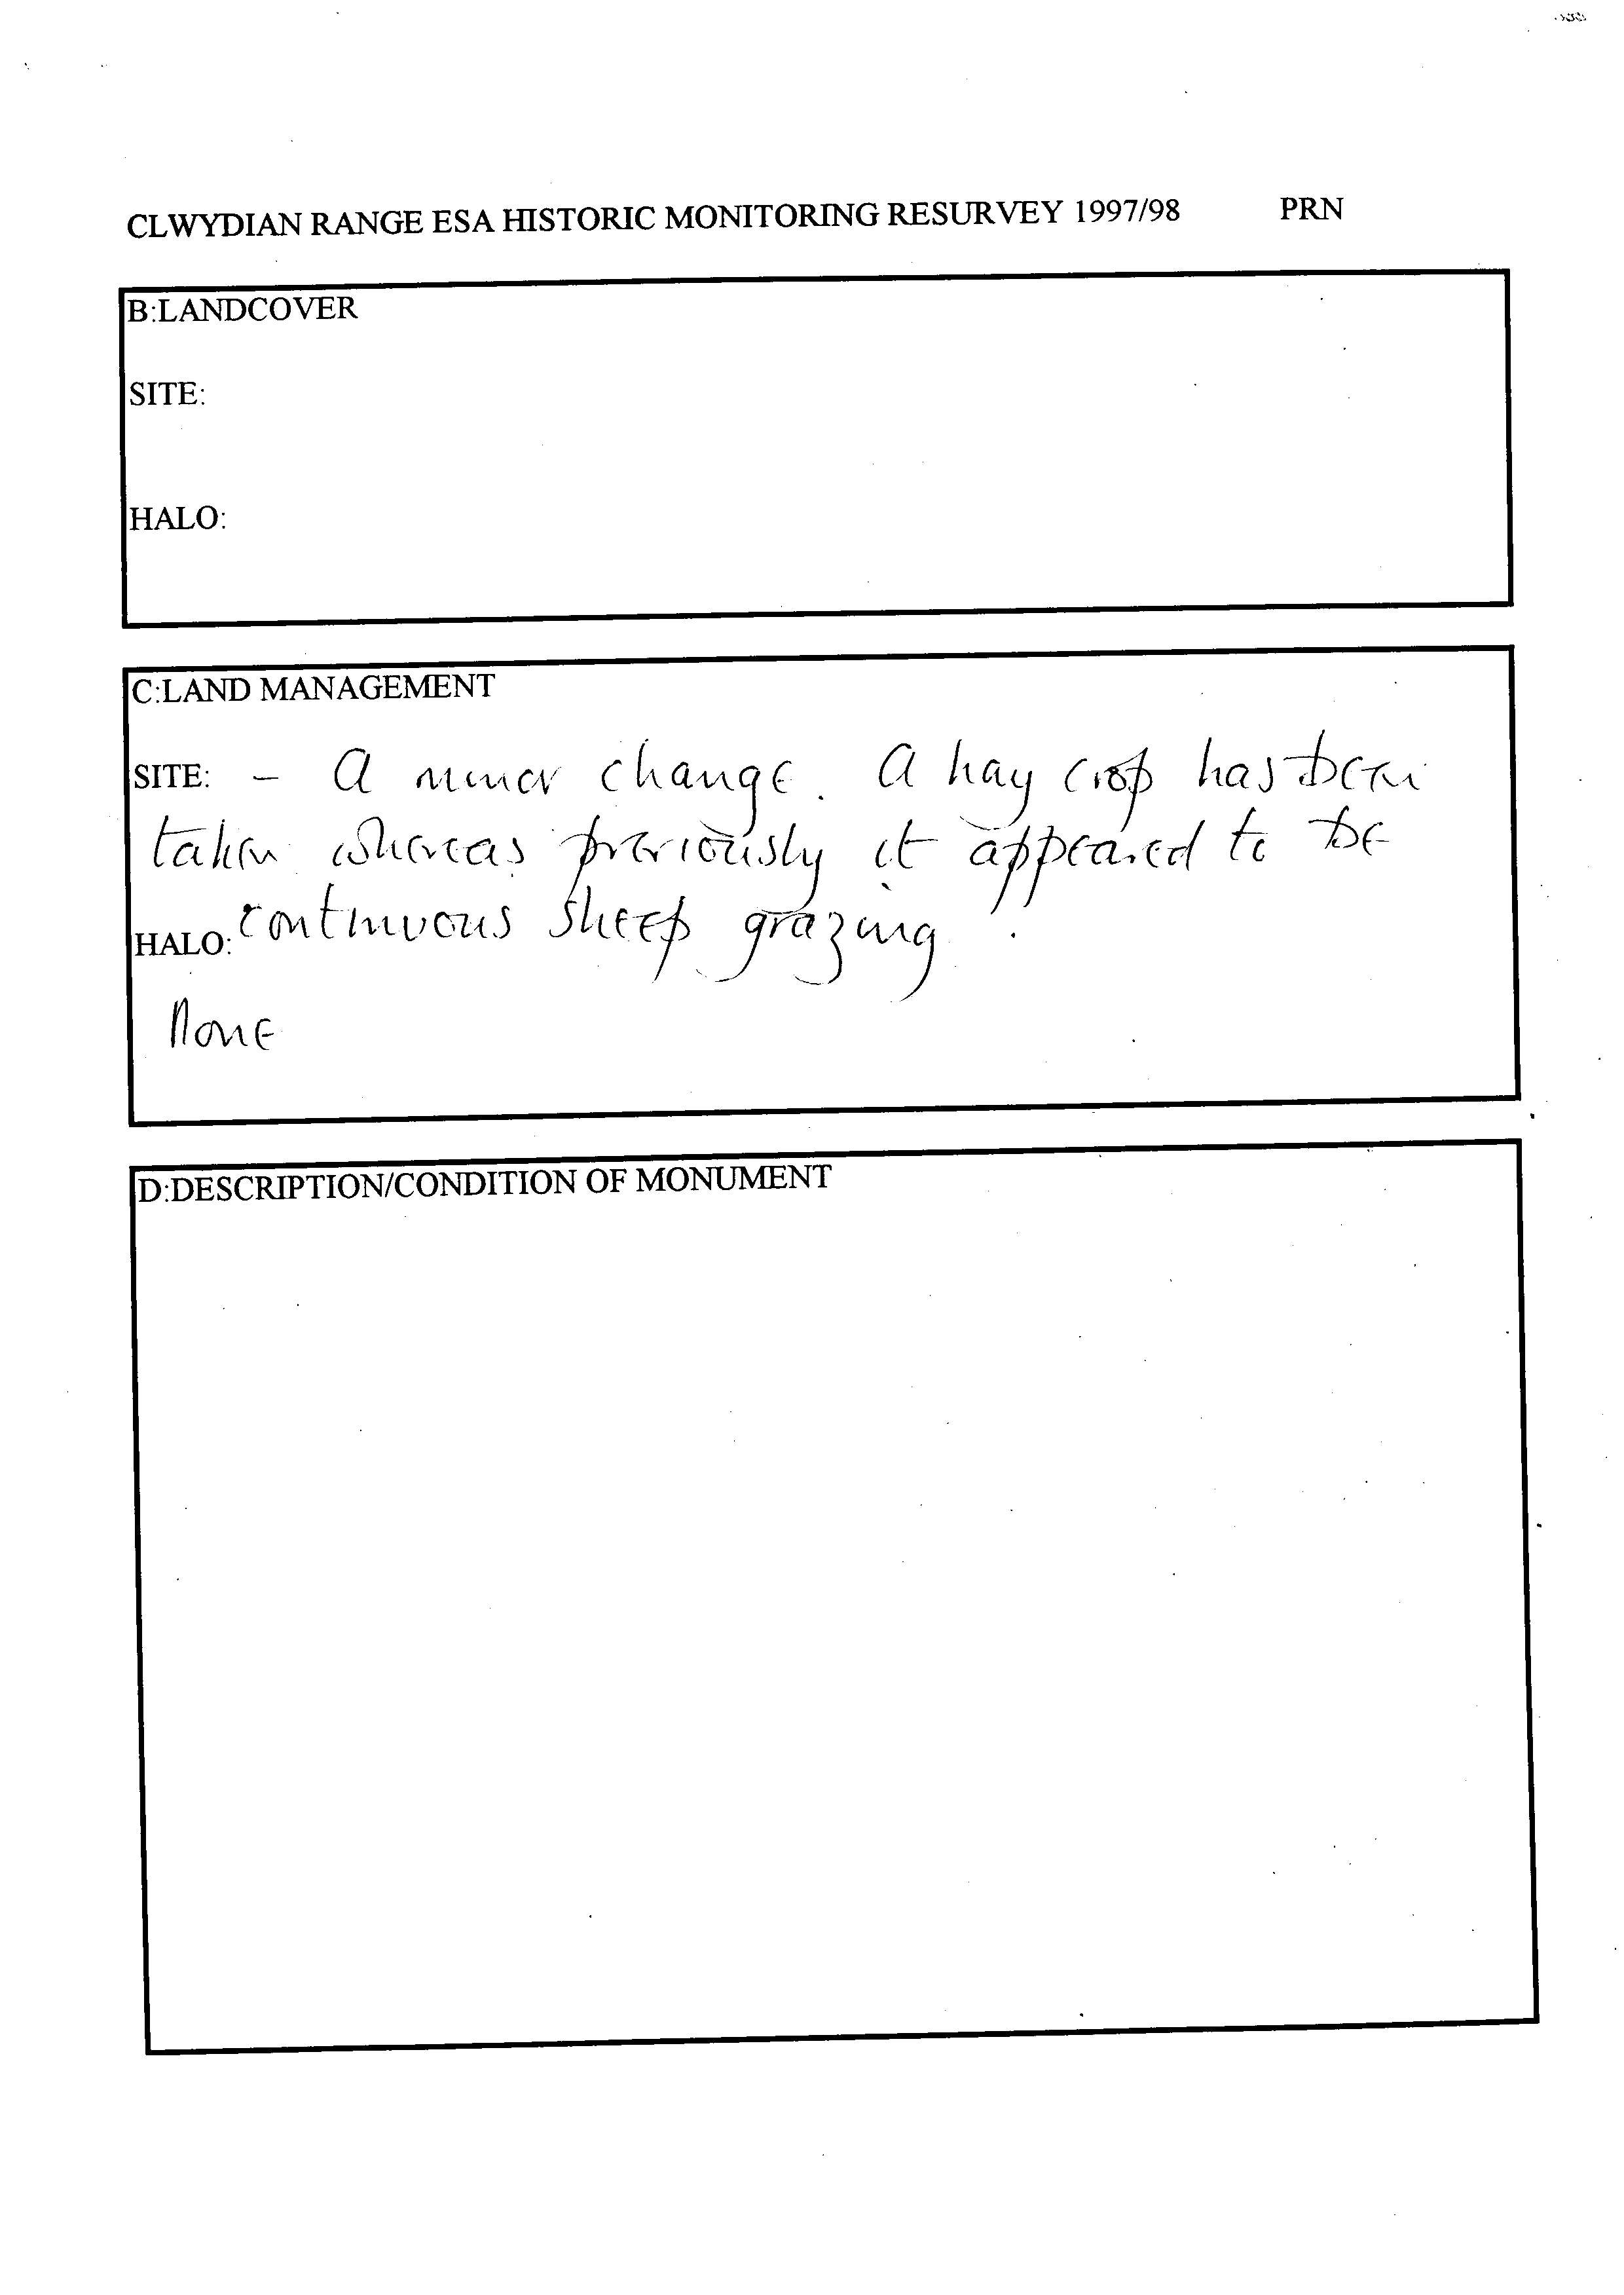 CLWYDIAN RANGE ESA HISTORIC MONITORING RESURVEY 1997/98 PRN
B:LANDCOVER
SITE:
HALO:
C:LAND MANAGEMENT
SITE: - A minor change. A hay crop has been
taken whereas previously it appeared to be
HALO: continuous sheep grazing.
None
D:DESCRIPTION/CONDITION OF MONUMENT